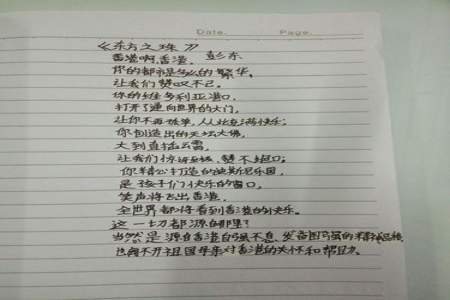 Date. Page.
《东方之珠》
香港啊,香港, 彭东
你的都市是多么的繁华。
让我们赞叹不已。
你的维多利亚港口,
打开了通向世界的大门,
让你不再孤单,人人充满快乐;
你创造出的天坛大佛,
大到直插云霄,
让我们惊讶至极、赞不绝口;
你精心打造的迪斯尼乐园,
是孩子们快乐的窗口,
笑声将飞出香港,
全世界都将看到香港的快乐。
这一切都源自那里?
当然是源自香港自强不息、发奋图强的精神品格,
也离不开祖国母亲对香港的关怀和帮助。